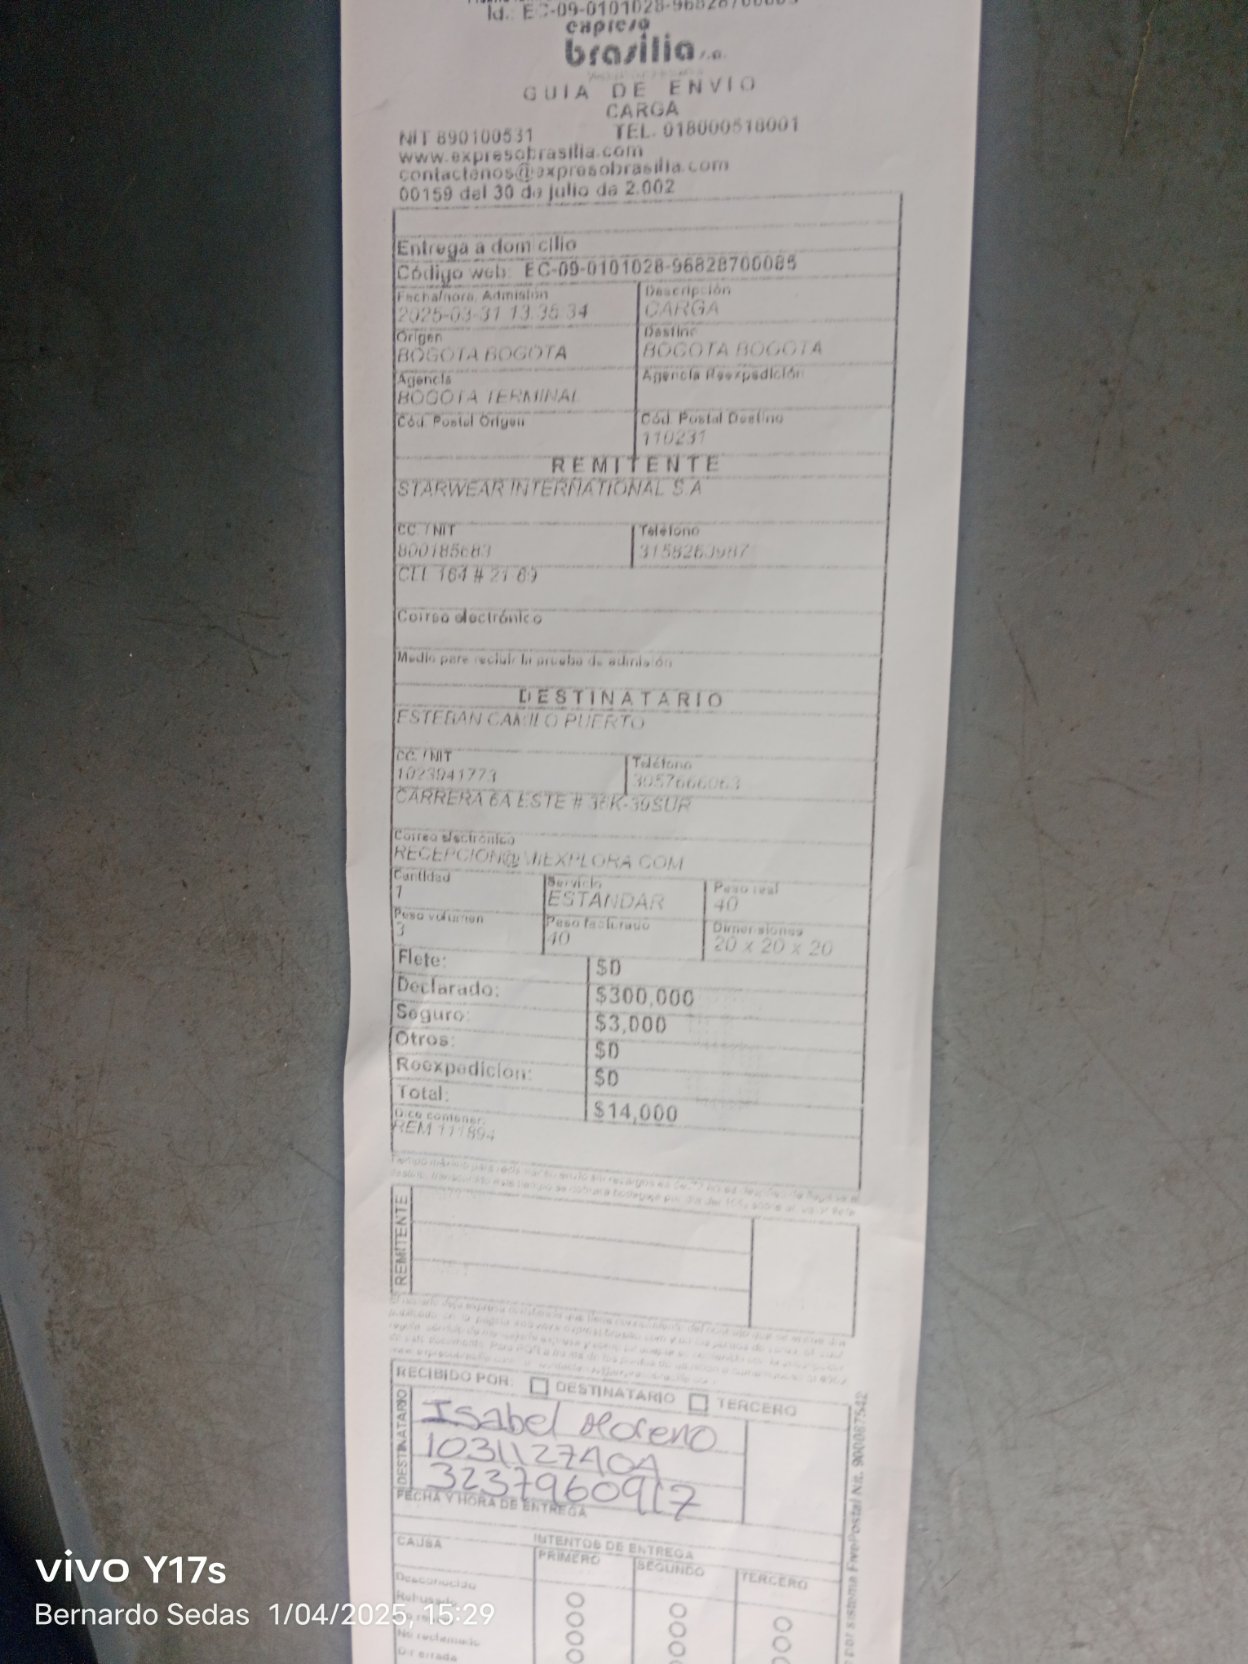 Id.: EC-09-0101028-96828700085
expreso
brasilia s.a.
GUIA DE ENVIO
CARGA
NIT 890100531 TEL. 018000518001
www.expresobrasilia.com
contactenos@expresobrasilia.com
00159 del 30 de julio de 2.002
Entrega a domicilio
Código web: EC-09-0101028-96828700085
Fecha/hora. Admisión Descripción
2025-03-31 13:35:34 CARGA
Origen Destino
BOGOTA BOGOTA BOGOTA BOGOTA
Agencia Agencia Reexpedición
BOGOTA TERMINAL
Cód. Postal Origen Cód. Postal Destino
110231
REMITENTE
STARWEAR INTERNATIONAL S A
CC. / NIT Teléfono
800185683 3158263987
CLL 164 # 21 69
Correo electrónico
Medio para recibir la prueba de admisión
DESTINATARIO
ESTEBAN CAMILO PUERTO
CC. / NIT Teléfono
1023941773 3057666063
CARRERA 6A ESTE # 36K-39SUR
Correo electrónico
RECEPCION@MIEXPLORA.COM
Cantidad Servicio Peso real
1 ESTANDAR 40
Peso volumen Peso facturado Dimensiones
3 40 20 x 20 x 20
Flete: $0
Declarado: $300,000
Seguro: $3,000
Otros: $0
Reexpedicion: $0
Total: $14,000
Dice contener:
REM 111894
REMITENTE
RECIBIDO POR: DESTINATARIO TERCERO
DESTINATARIO
Isabel Moreno
1031127404
3237960917
FECHA Y HORA DE ENTREGA
CAUSA INTENTOS DE ENTREGA
PRIMERO SEGUNDO TERCERO
Desconocido
Rehusado
No reclamado
Dir errada
por sistema FivePostal Nit. 900087542
vivo Y17s
Bernardo Sedas 1/04/2025, 15:29